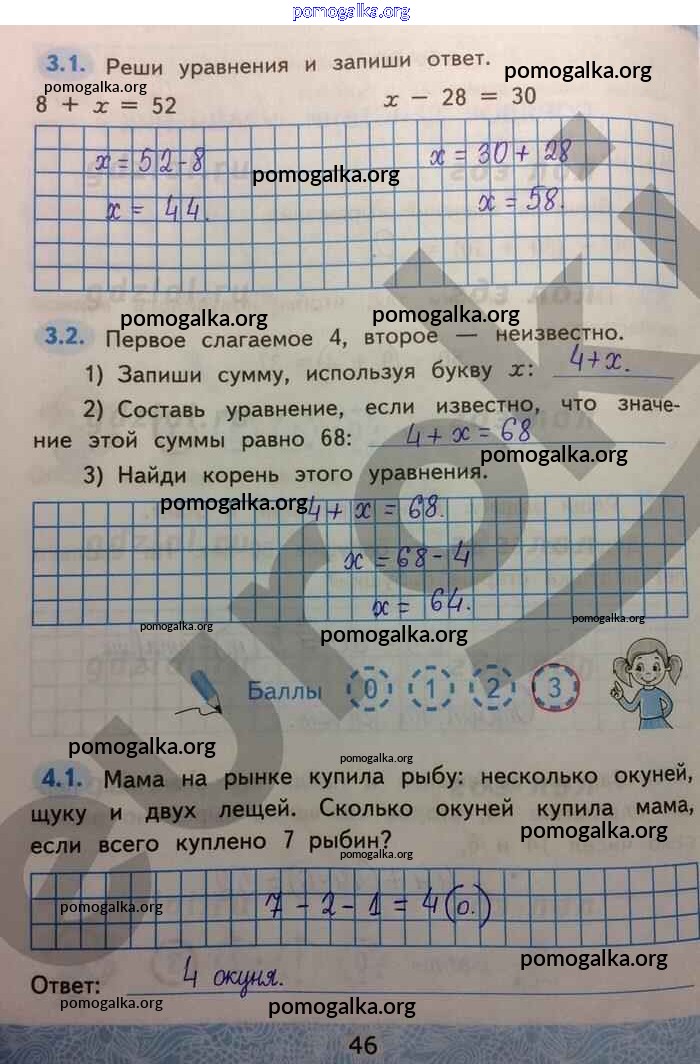 pomogalka.org
3.1. Реши уравнения и запиши ответ.
pomogalka.org
pomogalka.org
8 + x = 52 x − 28 = 30
x = 52 - 8 x = 30 + 28
pomogalka.org
x = 44. x = 58.
pomogalka.org pomogalka.org
3.2. Первое слагаемое 4, второе — неизвестно.
1) Запиши сумму, используя букву x: 4 + x.
2) Составь уравнение, если известно, что значе-
ние этой суммы равно 68: 4 + x = 68
pomogalka.org
3) Найди корень этого уравнения.
pomogalka.org
4 + x = 68.
x = 68 - 4
x = 64.
pomogalka.org pomogalka.org pomogalka.org
Баллы 0 1 2 3
pomogalka.org pomogalka.org
4.1. Мама на рынке купила рыбу: несколько окуней,
щуку и двух лещей. Сколько окуней купила мама,
pomogalka.org
если всего куплено 7 рыбин?
pomogalka.org
7 - 2 - 1 = 4 (о.)
pomogalka.org
pomogalka.org
Ответ: 4 окуня.
pomogalka.org pomogalka.org
46
euroki